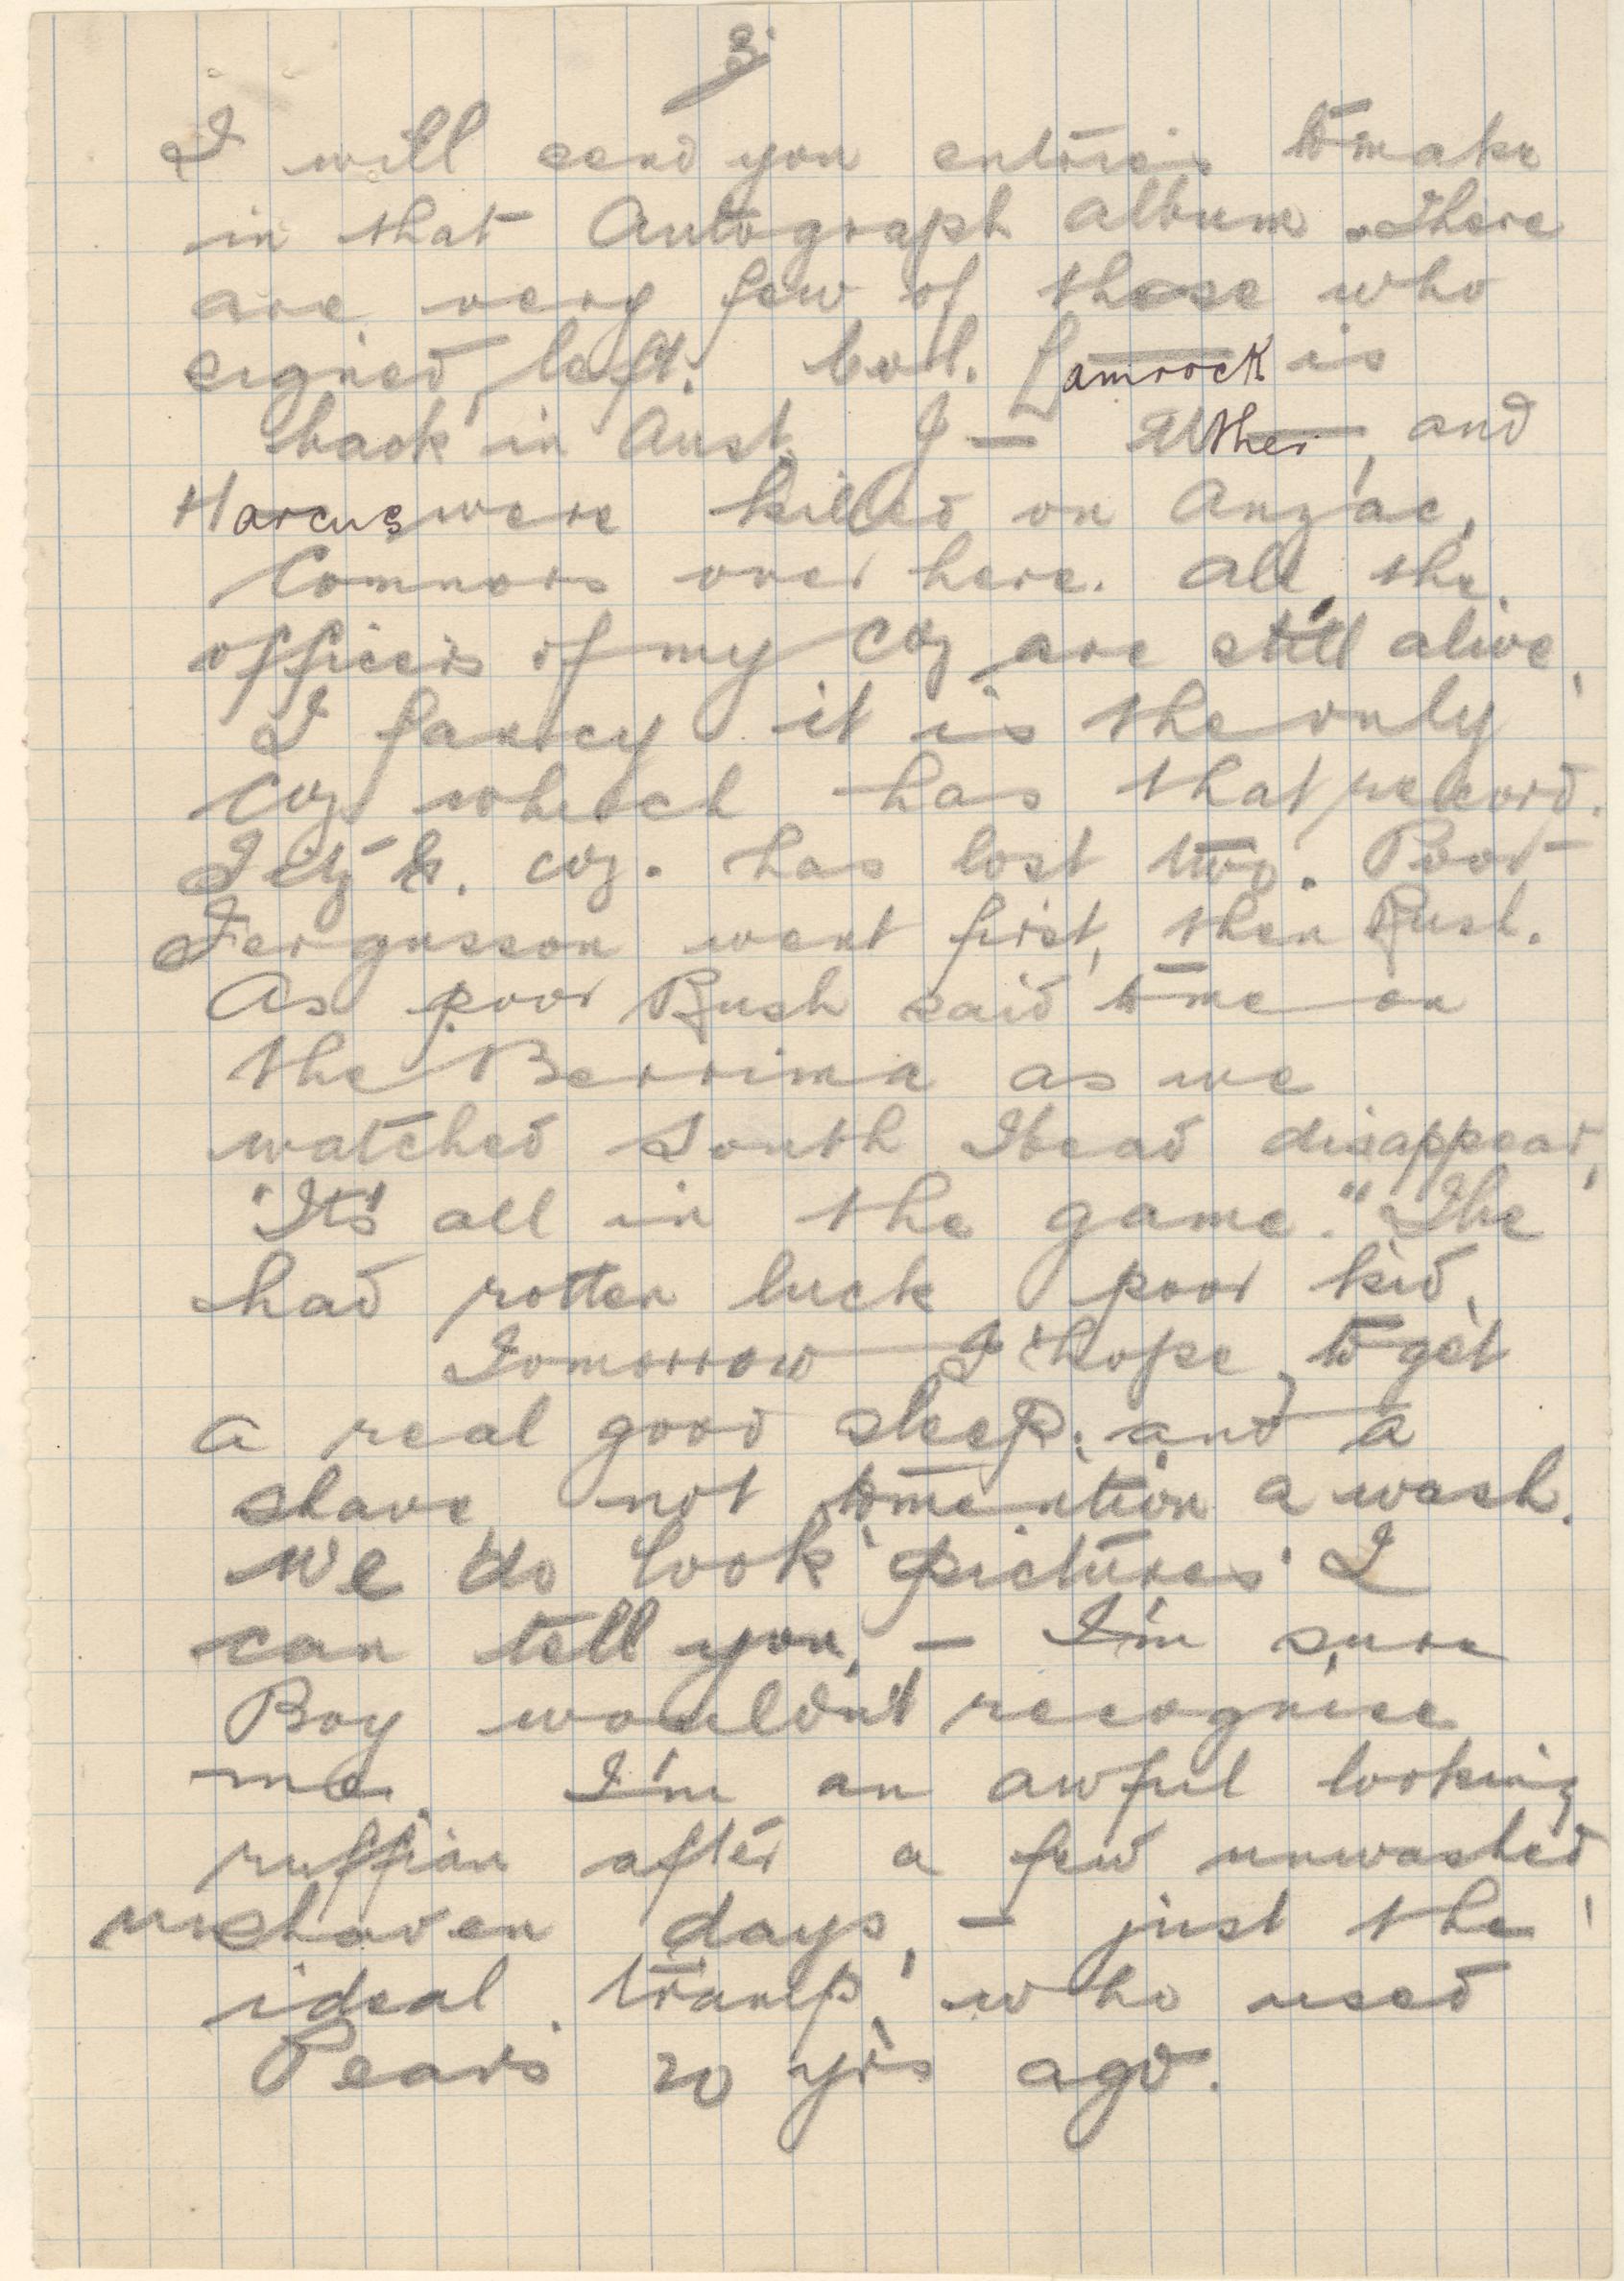 3.
I will send you entries to make
in that Autograph album. There
are very few of those who
signed, left. Col. Lamrock is
back in Aust. J — Luther, and
Harcus were killed on Anzac,
Connors over here. All the
officers of my Coy are still alive,
I fancy it is the only
Coy which has that record.
Fitz's. coy. has lost two. Poor
Fergusson went first, then Rush.
As poor Rush said to me on
the Berrima as we
watched South Head disappear,
"It's all in the game." He
had rotten luck poor kid.
Tomorrow I hope to get
a real good sleep. and a
shave, not to mention a wash.
We do look pictures I
can tell you, — I'm sure
Boy wouldn't recognise
me. I'm an awful looking
ruffian after a few unwashed
unshaven days, — just the
ideal tramp, who used
Pears 20 yrs ago.